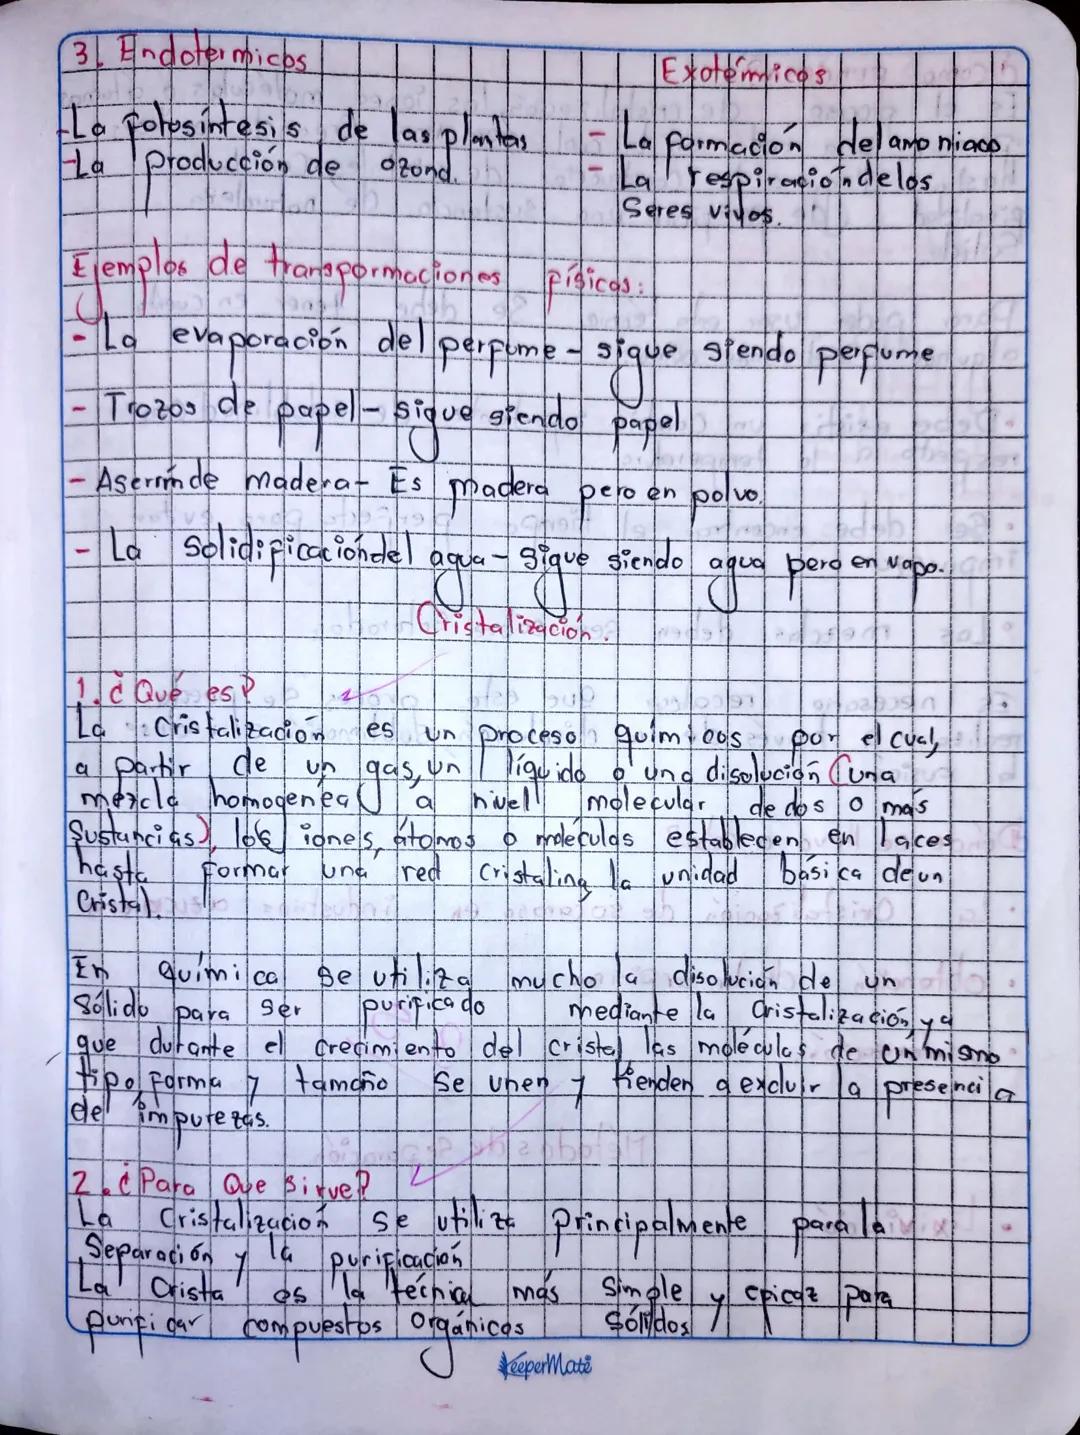 3. Endotermicos
Exotérmicos
- La fotosíntesis de las plantas
- La producción de ozono.
- La formación del amoniaco
- La respiración de los
Seres vivos.
Ejemplos de transformaciones físicas:
- La evaporación del perfume - sigue siendo perfume
- Trozos de papel - sigue siendo papel
- Aserrín de madera - Es madera pero en polvo.
- La Solidificación del agua - sigue siendo agua pero en vapo.
Cristalización.
1. ¿Qué es?
La Cristalización es un proceso químicos por el cual,
a partir de un gas, un líquido o una disolución (una
mezcla homogenea a nivel molecular de dos o más
Sustancias), los iones, átomos o moléculas establecen en laces
hasta formar una red cristalina, la unidad básica de un
Cristal.
En química se utiliza mucho la disolución de un
sólido para ser purificado mediante la cristalización, ya
que durante el crecimiento del cristal, las moléculas de un mismo
tipo, forma y tamaño se unen y tienden a excluir la presencia
de impurezas.
2. ¿Para Que sirve?
La Cristalización se utiliza principalmente para la
Separación y la purificación
La Crista es la técnica más simple y eficaz para
purificar compuestos orgánicos sólidos
KeeperMate